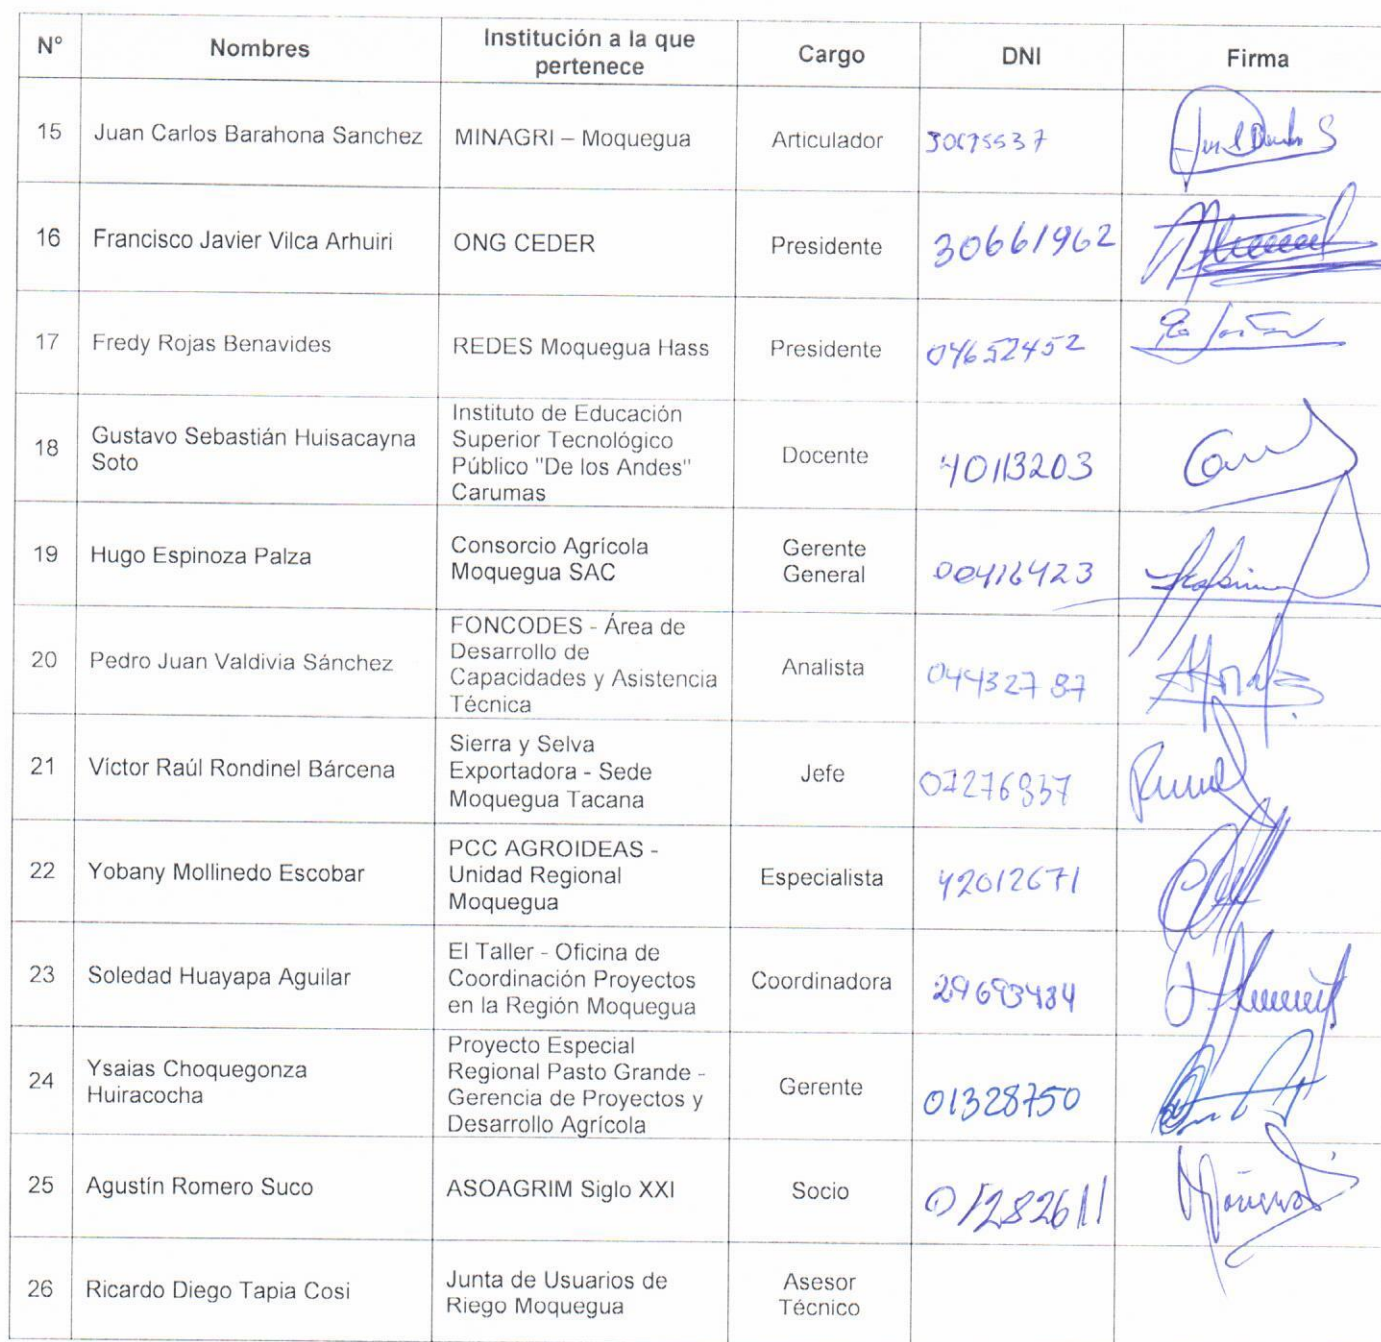 Nº Nombres Institución a la que pertenece Cargo DNI Firma
15 Juan Carlos Barahona Sanchez MINAGRI – Moquegua Articulador
16 Francisco Javier Vilca Arhuiri ONG CEDER Presidente 30661962
17 Fredy Rojas Benavides REDES Moquegua Hass Presidente 04652452
18 Gustavo Sebastián Huisacayna Soto Instituto de Educación Superior Tecnológico Público "De los Andes" Carumas Docente 40113203
19 Hugo Espinoza Palza Consorcio Agrícola Moquegua SAC Gerente General 00416423
20 Pedro Juan Valdivia Sánchez FONCODES - Área de Desarrollo de Capacidades y Asistencia Técnica Analista 04432787
21 Víctor Raúl Rondinel Bárcena Sierra y Selva Exportadora - Sede Moquegua Tacana Jefe
22 Yobany Mollinedo Escobar PCC AGROIDEAS - Unidad Regional Moquegua Especialista 42012671
23 Soledad Huayapa Aguilar El Taller - Oficina de Coordinación Proyectos en la Región Moquegua Coordinadora
24 Ysaias Choquegonza Huiracocha Proyecto Especial Regional Pasto Grande - Gerencia de Proyectos y Desarrollo Agrícola Gerente 01328750
25 Agustín Romero Suco ASOAGRIM Siglo XXI Socio 01282611
26 Ricardo Diego Tapia Cosi Junta de Usuarios de Riego Moquegua Asesor Técnico